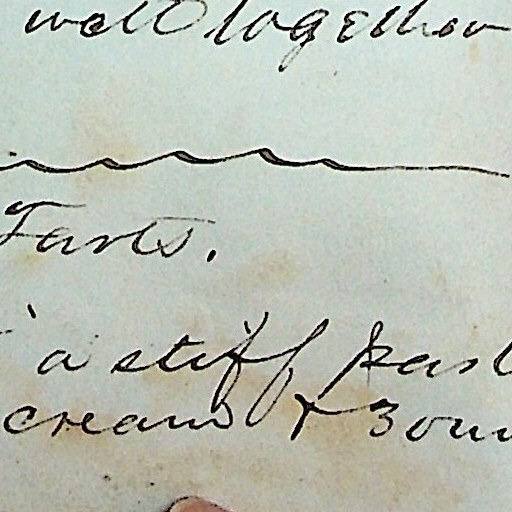 well together
Tarts.
a stiff past
cream & 3 oun